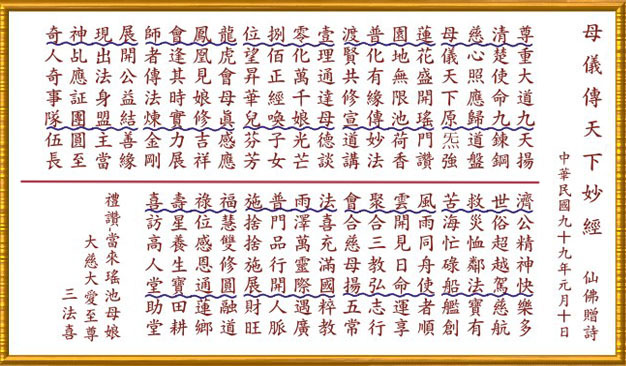 母儀傳天下妙經 仙佛贈詩
中華民國九十九年元月十日
尊重大道九天揚
清楚使命九鍊鋼
慈心照應歸道盤
母儀天下原炁強
蓮花盛開瑤門讚
園地無限池荷香
普化有緣傳妙法
渡賢共修宣道講
壹理通達母德談
零化萬千娘光芒
捌佰正經喚子女
位望昇華兒芬芳
龍虎會母真感應
鳳凰見娘修吉祥
會逢其時實力展
師者傳法煉金剛
展開公益結善緣
現出法身盟主當
神乩應証團圓至
奇人奇事隊伍長
濟公精神快樂多
世俗超越駕慈航
救災恤鄰法寶有
苦海忙碌船艦創
風雨同舟使者順
雲開見日命運享
聚合三教弘志行
會合慈母揚五常
法喜充滿國粹教
雨澤萬靈際遇廣
普門品行開人脈
施捨捨施展財旺
福慧雙修圓融道
祿位感恩通蓮鄉
壽星養生寶田耕
喜訪高人堂助堂
禮讚-當來瑤池母娘
大慈大愛至尊
三法喜